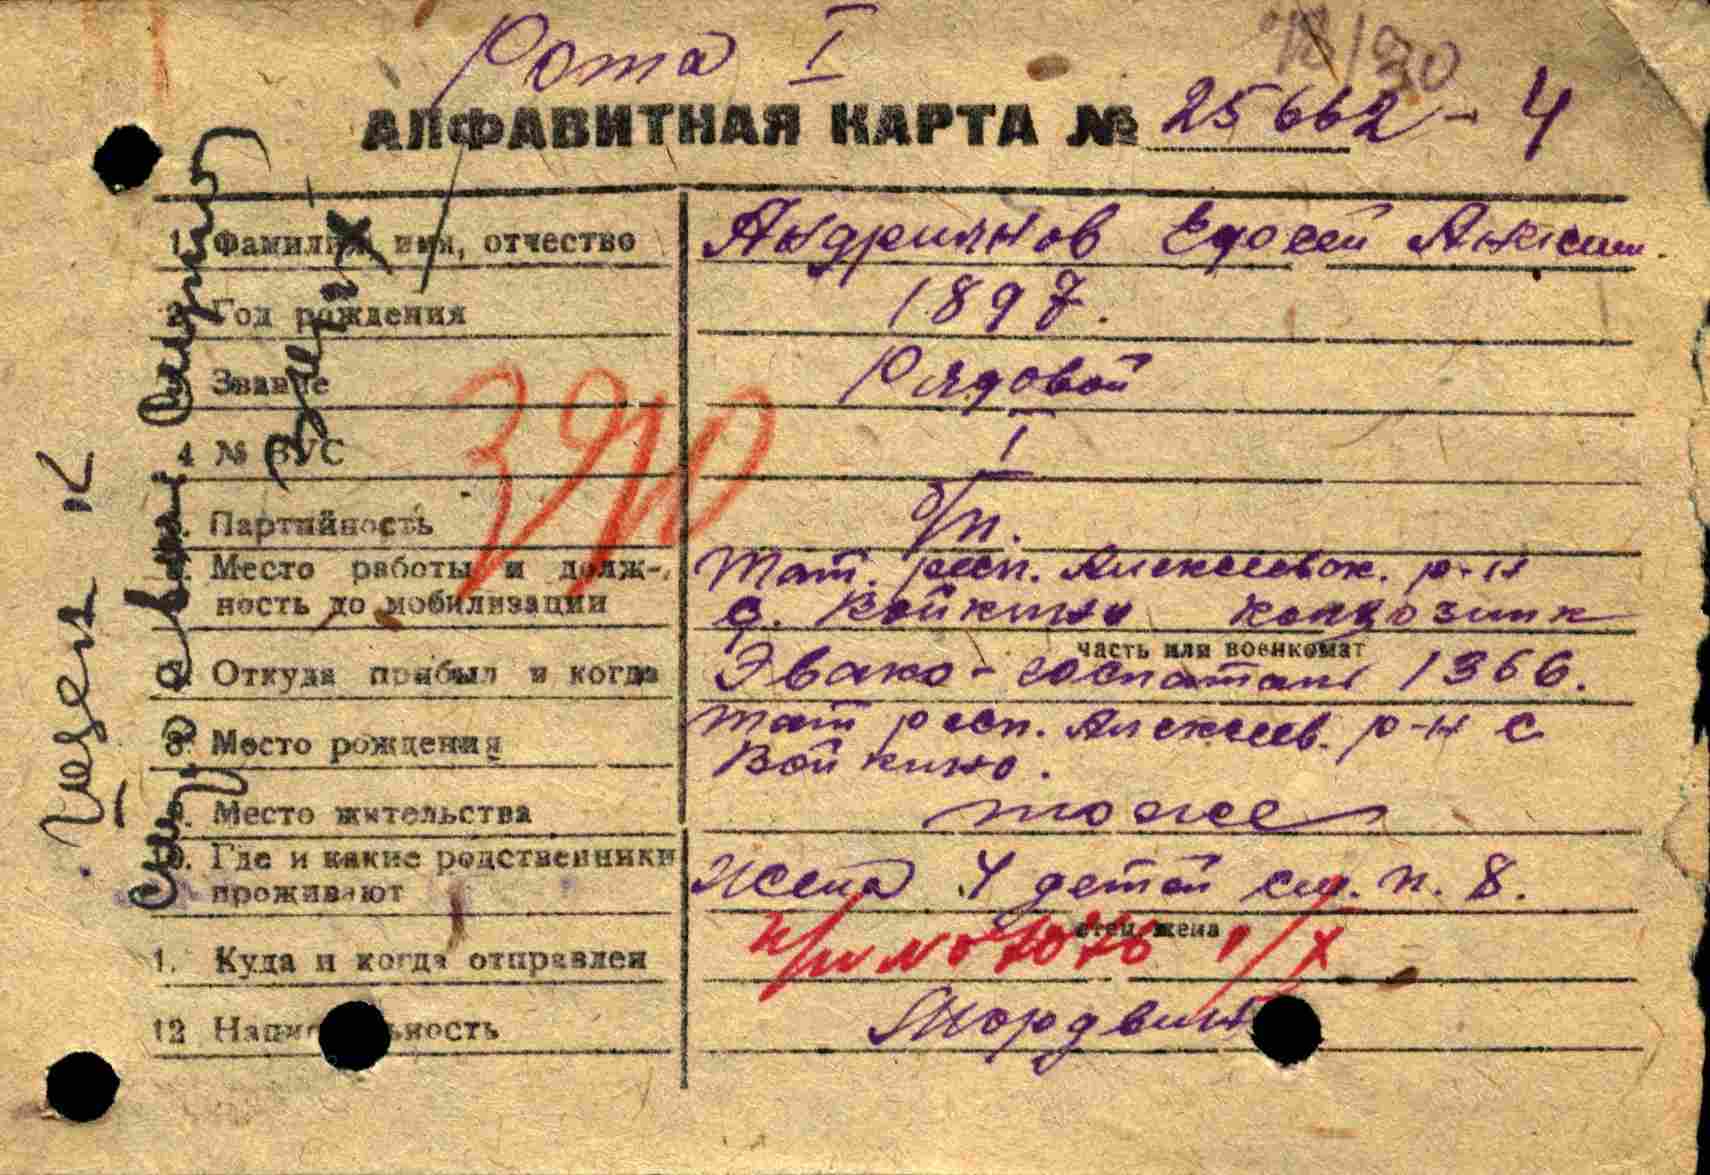 Рота I
18/30
АЛФАВИТНАЯ КАРТА № 25662 - 4
1. Фамилия, имя, отчество Андриянов Ефосей
2. Год рождения 1897.
Звание Рядовой
4 № ВУС I
Партийность б/п.
Место работы и долж-
ность до мобилизации
Тат. респ. Алексеевск. р-н
с. Войкино колхозник
часть или военкомат
Откуда прибыл и когда Эвако-госпиталь 1366.
8. Место рождения Тат респ. Алексеев. р-н с
Войкино.
9. Место жительства тоже
10. Где и какие родственники
проживают
Жена 4 детей см. п. 8.
отец, жена
1. Куда и когда отправлен 1/X
12 Национальность Мордвин
Член к